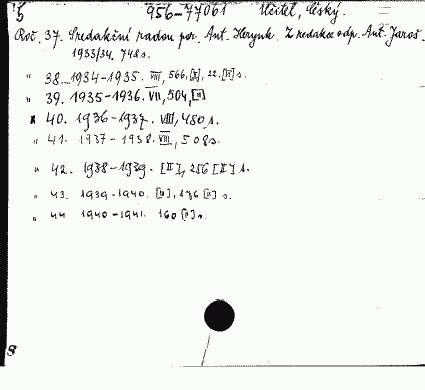 5 956-77061 Učitel, Český.
Roč. 37. S redakční radou por. Ant. Hrynk. Z redakce odp. Ant. Jaroš.
1933/34. 748 s.
" 38. 1934-1935. VIII, 566, [II], 22. [II] s.
" 39. 1935-1936. VII, 504, [II]
" 40. 1936-1937. VIII, 480 s.
" 41. 1937-1938. VIII, 508 s.
" 42. 1938-1939. [II], 256 [II] s.
" 43. 1939-1940. [II], 176 [II] s.
" 44 1940-1941. 160 [II] s.
8